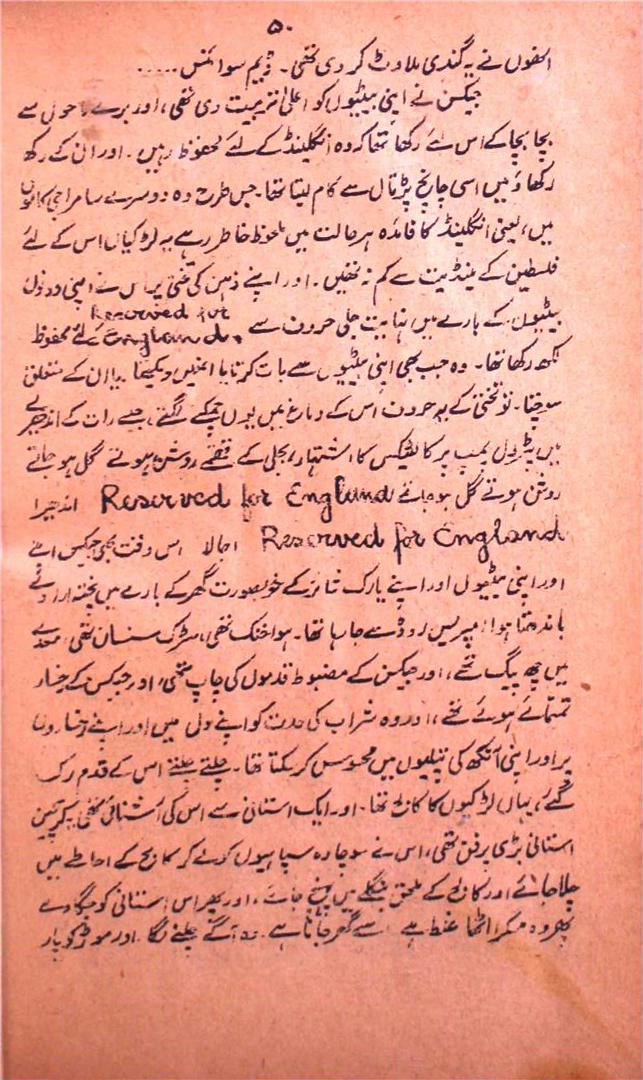 ۵۰
انھوں نے یہ گندی ملاوٹ کر دی تھی۔ ڈیم سوائنس.....
جیکسن نے اپنی بیٹیوں کو اعلیٰ تربیت دی تھی، اور برے ماحول سے
بچا بچا کے اس لئے رکھا تھا کہ وہ انگلینڈ کے لئے محفوظ رہیں۔ اور ان کے رکھ
رکھاؤ میں اسی جانچ پڑتال سے کام لیتا تھا۔ جس طرح وہ دوسرے سامراجی کاموں
میں، یعنی انگلینڈ کا فائدہ ہر حالت میں ملحوظ خاطر رہے یہ لڑکیاں اس کے لئے
فلسطین کے مینڈیٹ سے کم نہ تھیں۔ اور اپنے ذہن کی تختی پر اس نے اپنی دونوں
بیٹیوں کے بارے میں نہایت جلی حروف سے Reserved for England کے لئے محفوظ
لکھ رکھا تھا۔ وہ جب بھی اپنی بیٹیوں سے بات کرتا یا انھیں دیکھتا۔ یا ان کے متعلق
سوچتا۔ تو تختی کے یہ حروف اس کے دماغ میں یوں چمکنے لگتے، جیسے رات کے اندھیرے
میں پٹرول پمپ پر کالٹیکس کا اشتہار، بجلی کے قمقمے روشن ہوتے گل ہو جاتے
روشن ہوتے گل ہو جاتے Reserved for England اندھیرا
Reserved for England اجالا اس وقت بھی جیکسن اپنے
اور اپنی بیٹیوں اور اپنے یارک شائر کے خوبصورت گھر کے بارے میں پختہ ارادے
باندھتا ہوا ایمپریس روڈ سے جا رہا تھا۔ ہوا خنک تھی، سڑک سنسان تھی معدے
میں چھ پیگ تھے، اور جیکسن کے مضبوط قدموں کی چاپ تھی، اور جیکسن کے رخسار
تمتمائے ہوئے تھے، اور وہ شراب کی حدت کو اپنے دل میں اور اپنے رخساروں
پر اور اپنی آنکھ کی پتلیوں میں محسوس کر سکتا تھا۔ چلتے چلتے اس کے قدم رک
گئے، یہاں لڑکیوں کا کالج تھا۔ اور ایک استانی سے اس کی آشنائی تھی یہ کرسچین
استانی بڑی پرفن تھی، اس نے سوچا وہ سپاہیوں کو لے کر کالج کے احاطے میں
چلا جائے اور کالج کے ملحق بنگلے میں پہنچ جائے، اور پھر اس استانی کو جگا دے
پھر وہ مسکرا اٹھا غلط ہے اسے گھر جانا ہے۔ وہ آگے چلنے لگا۔ اور موڑ کو پار